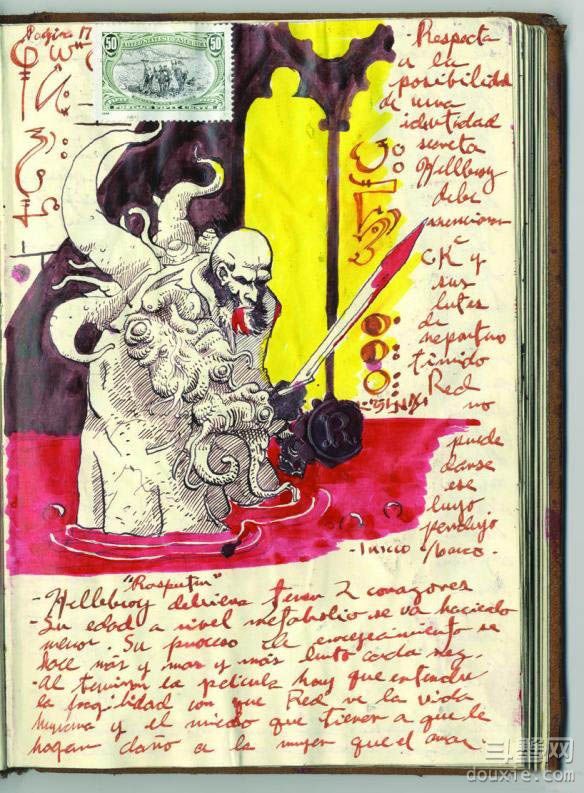 Pagina 17
50
50
- Respecta
a la
posibilidad
de una
identidad
secreta
Hellboy
debe
mencionar
CK y
sus
lutes
de
reportero
timido
Red
no
puede
darse
ese
lujo
pendejo
- Inicio
R
"Rasputin"
- Hellboy debiera tener 2 corazones
- Su edad a nivel metabolico se va haciedo
menor. Su proceso de envejecimiento se
hace mas y mas y más lento cada vez.
- Al terminar la pelicula hay que entender
la fragilidad con que Red ve la vida
humana y el miedo que tiene a que le
hagan daño a la mujer que el ama.
斗蟹网
douxie.com